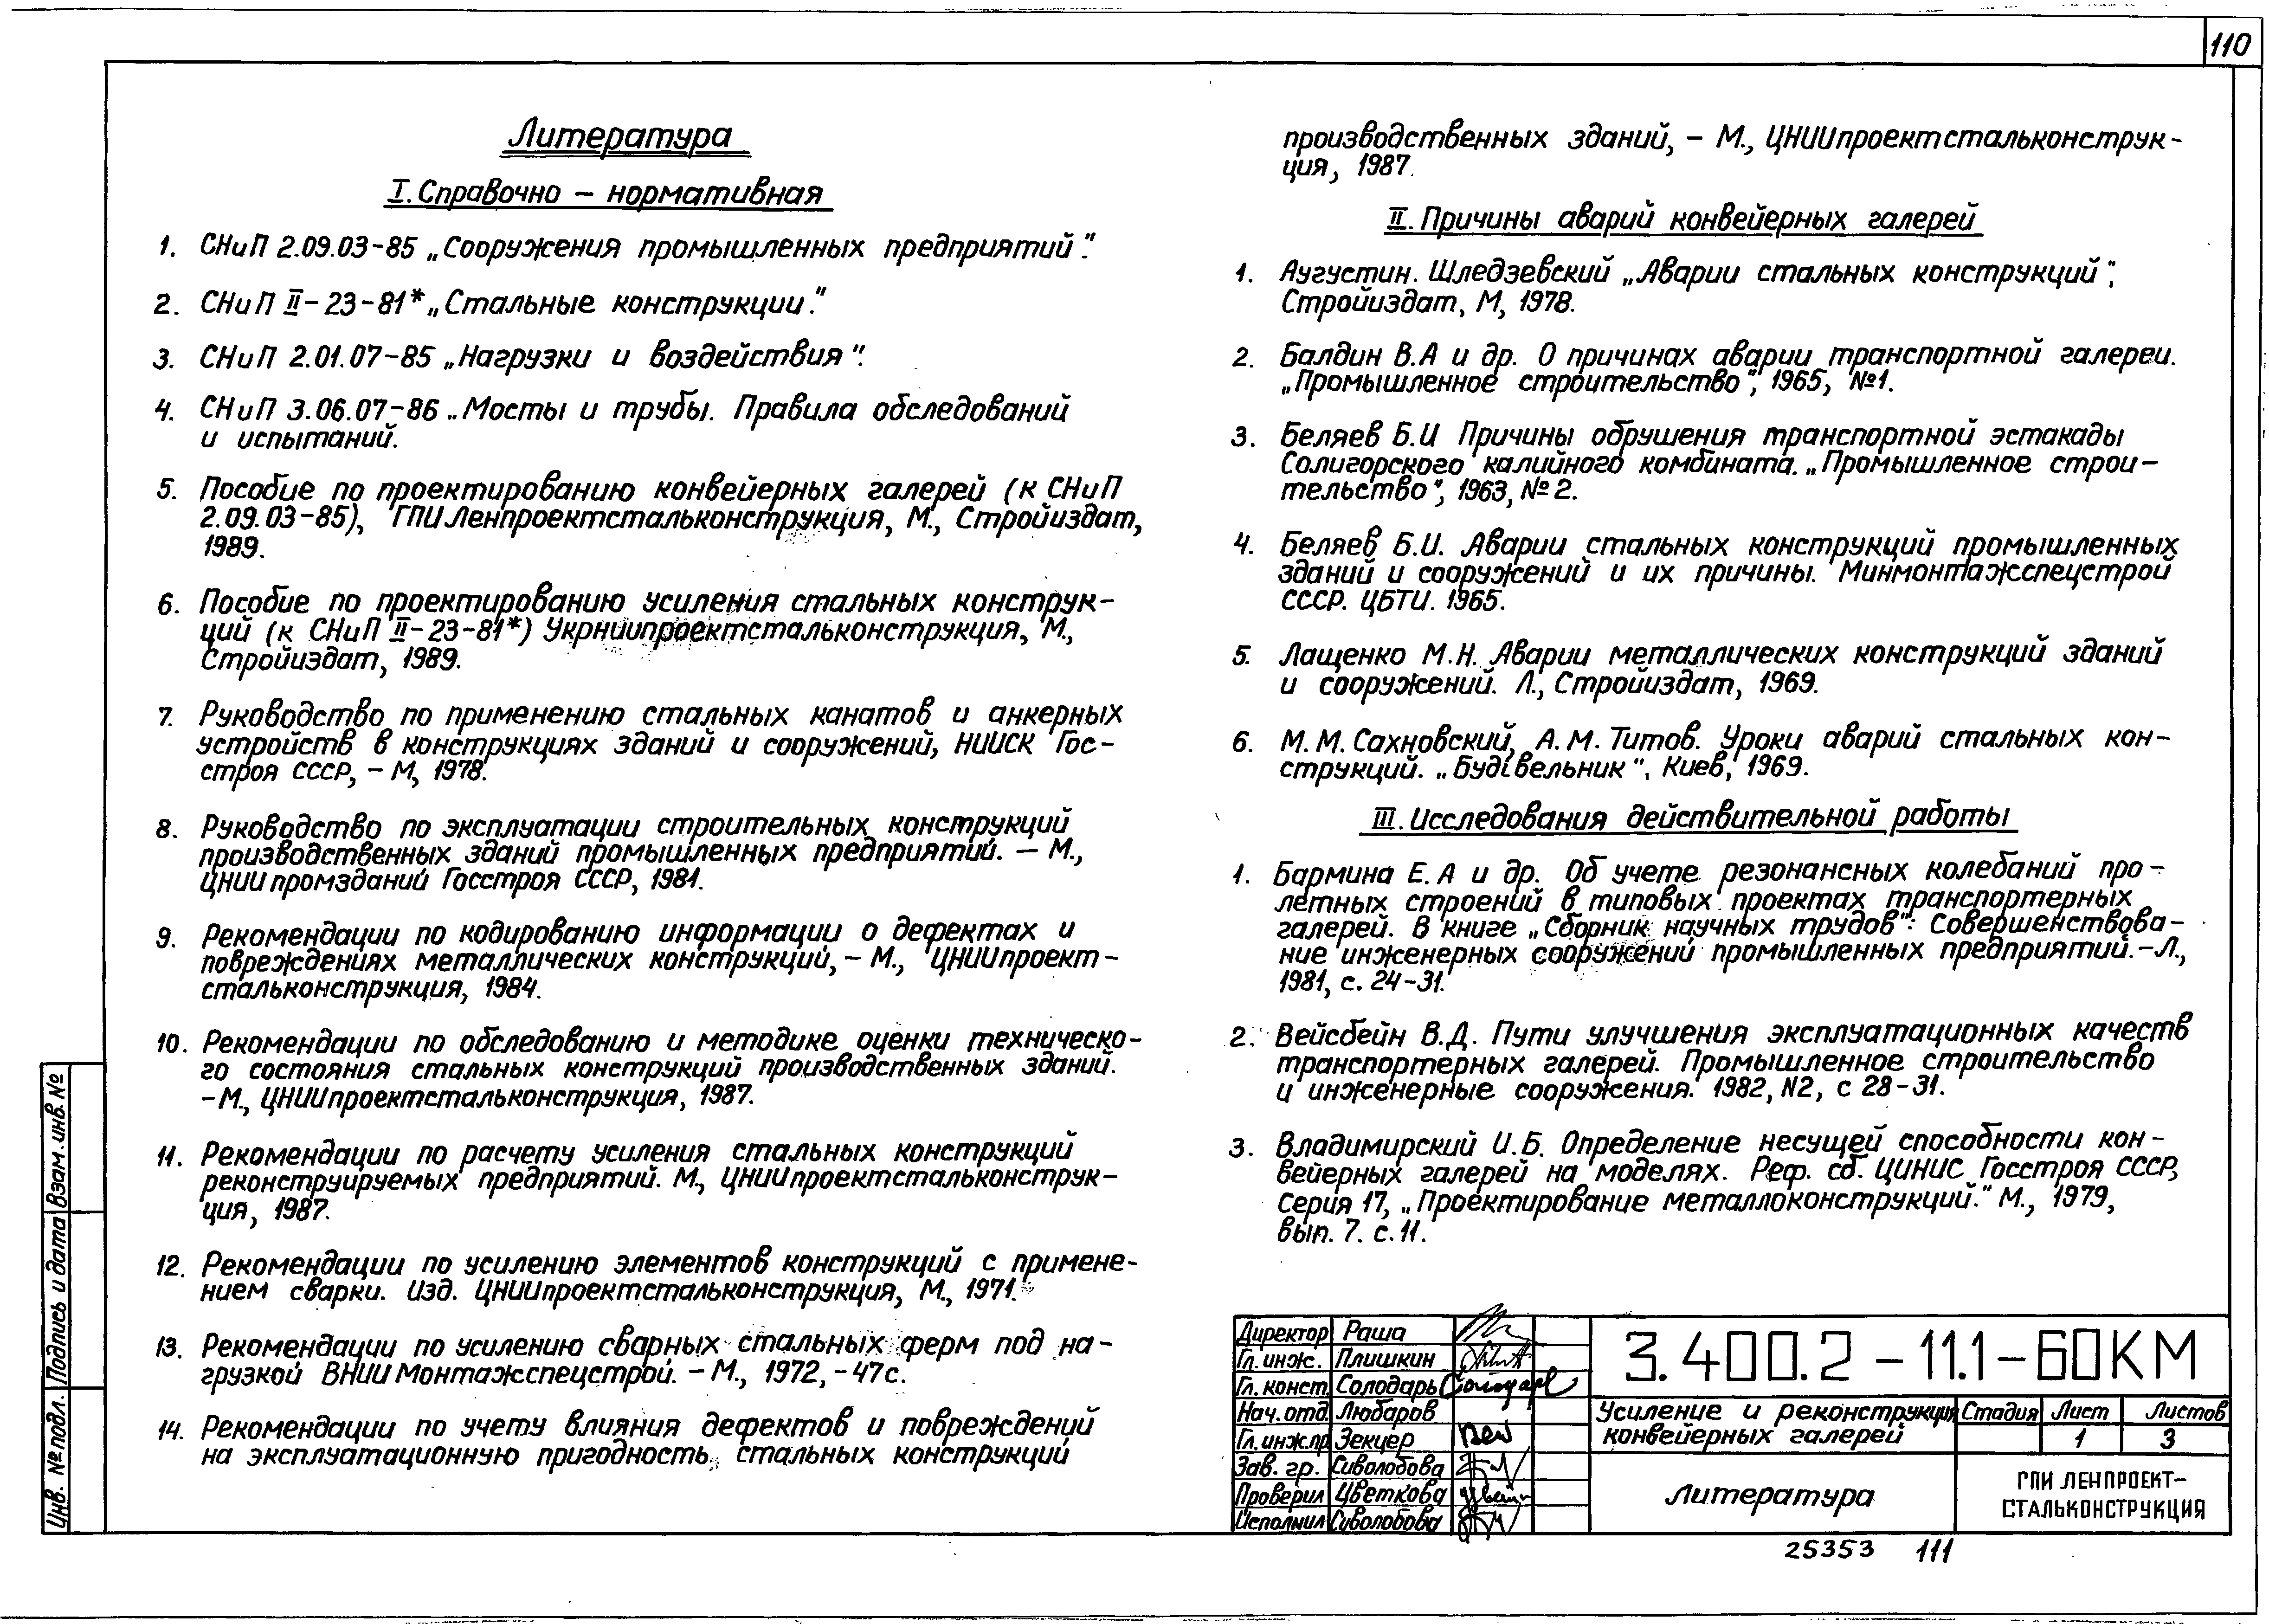 110
Литература
I. Справочно – нормативная
1. СНиП 2.09.03-85 „Сооружения промышленных предприятий".
2. СНиП II-23-81* „Стальные конструкции".
3. СНиП 2.01.07-85 „Нагрузки и воздействия".
4. СНиП 3.06.07-86 „Мосты и трубы. Правила обследований
и испытаний.
5. Пособие по проектированию конвейерных галерей (к СНиП
2.09.03-85), ГПИ Ленпроектстальконструкция, М., Стройиздат,
1989.
6. Пособие по проектированию усиления стальных конструк-
ций (к СНиП II-23-81*) Укрниипроектстальконструкция, М.,
Стройиздат, 1989.
7. Руководство по применению стальных канатов и анкерных
устройств в конструкциях зданий и сооружений, НИИСК Гос-
строя СССР, – М, 1978.
8. Руководство по эксплуатации строительных конструкций
производственных зданий промышленных предприятий. – М.,
ЦНИИпромзданий Госстроя СССР, 1981.
9. Рекомендации по кодированию информации о дефектах и
повреждениях металлических конструкций, – М., ЦНИИпроект-
стальконструкция, 1984.
10. Рекомендации по обследованию и методике оценки техническо-
го состояния стальных конструкций производственных зданий.
– М., ЦНИИпроектстальконструкция, 1987.
11. Рекомендации по расчету усиления стальных конструкций
реконструируемых предприятий. М., ЦНИИпроектстальконструк-
ция, 1987.
12. Рекомендации по усилению элементов конструкций с примене-
нием сварки. Изд. ЦНИИпроектстальконструкция, М., 1971.
13. Рекомендации по усилению сварных стальных ферм под на-
грузкой ВНИИМонтажспецстрой. – М., 1972, – 47с.
14. Рекомендации по учету влияния дефектов и повреждений
на эксплуатационную пригодность стальных конструкций
производственных зданий, – М., ЦНИИпроектстальконструк-
ция, 1987.
II. Причины аварий конвейерных галерей
1. Аугустин. Шледзевский „Аварии стальных конструкций",
Стройиздат, М, 1978.
2. Балдин В.А и др. О причинах аварии транспортной галереи.
„Промышленное строительство", 1965, №1.
3. Беляев Б.И Причины обрушения транспортной эстакады
Солигорского калийного комбината. „Промышленное строи-
тельство", 1963, №2.
4. Беляев Б.И. Аварии стальных конструкций промышленных
зданий и сооружений и их причины. Минмонтажспецстрой
СССР. ЦБТИ. 1965.
5. Лащенко М.Н. Аварии металлических конструкций зданий
и сооружений. Л., Стройиздат, 1969.
6. М.М. Сахновский, А.М. Титов. Уроки аварий стальных кон-
струкций. „Будівельник", Киев, 1969.
III. Исследования действительной работы
1. Бармина Е.А и др. Об учете резонансных колебаний про-
летных строений в типовых проектах транспортерных
галерей. В книге „Сборник научных трудов": Совершенствова-
ние инженерных сооружений промышленных предприятий. – Л.,
1981, с. 24-31.
2. Вейсбейн В.Д. Пути улучшения эксплуатационных качеств
транспортерных галерей. Промышленное строительство
и инженерные сооружения. 1982, N2, с 28-31.
3. Владимирский И.Б. Определение несущей способности кон-
вейерных галерей на моделях. Реф. сб. ЦИНИС Госстроя СССР,
Серия 17, „Проектирование металлоконструкций." М., 1979,
вып. 7. с. 11.
Директор Раша
Гл. инж. Плишкин
Гл. конст. Солодарь Солодарь
Нач. отд. Любаров
Гл. инж.пр Зекцер
Зав. гр. Сиволобова
Проверил Цветкова
Исполнил Сиволобова
3.400.2-11.1-60КМ
Усиление и реконструкция
конвейерных галерей
Стадия Лист Листов
1 3
Литература
ГПИ ЛЕНПРОЕКТ-
СТАЛЬКОНСТРУКЦИЯ
25353 111
Инв. № подл. Подпись и дата Взам. инв. №